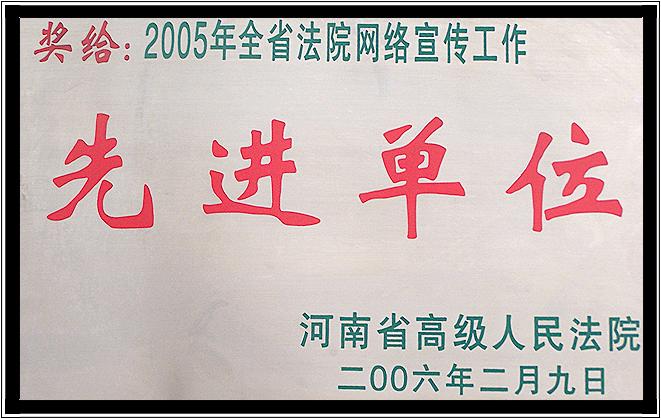 奖给：2005年全省法院网络宣传工作
先进单位
河南省高级人民法院
二OO六年二月九日